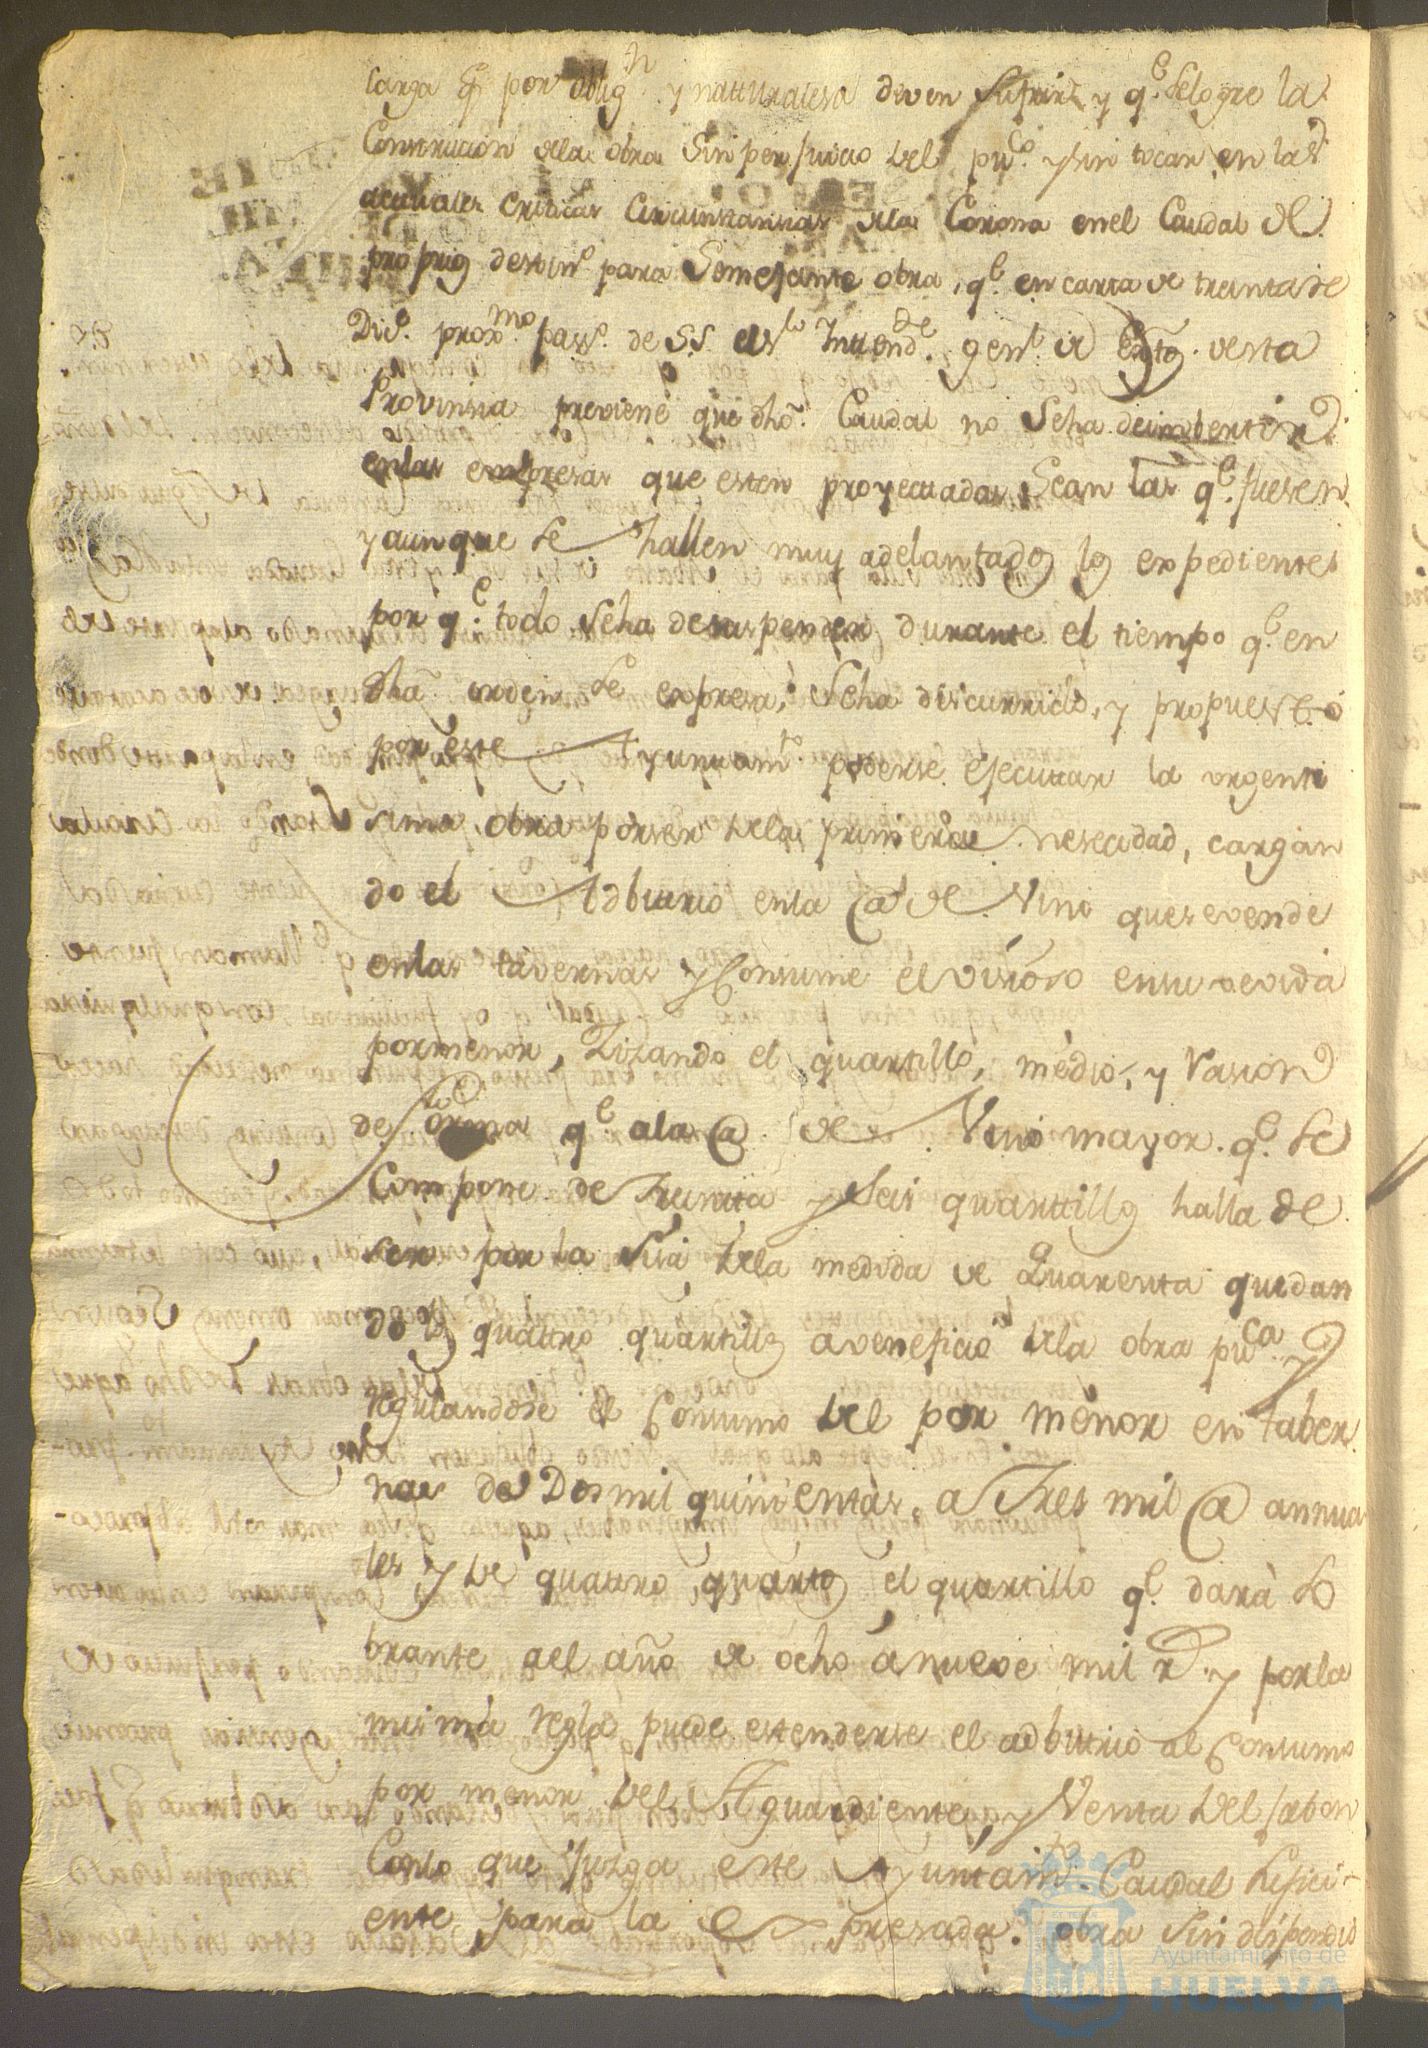 carga q.e por oblig.n y naturalesa deven sufrir y q.e se logre la
Construcion dela obra sin perjuicio del pu.co y sin tocar en las
actuales criticas circunstansias dela Corona en el Caudal de
proprios destin.o para semejante obra, q.e en carta de treinta de
Dic.e prox.mo pass.o de S.S. el S.r Intend.te gen.l de exto. desta
Provinsia previene que dho. Caudal no seha deimbertir
enlas empresas que esten proyectadas sean las q.e fuesen
y aunque se hallen muy adelantados los expedientes
por q.e todo seha desuspender durante el tiempo q.e en
dha. orden se expresa, seha discurrido, y propuesto
por este Ayuntam.to poderse ejecutar la urgenti
sima obra porser dela primera nesecidad, cargan
do el Adbitrio enla @ de Vino quesevende
enlas tavernas y Consume el visioso ensu bevida
pormenor, Sizando el quartillo, medio, y
de forma q.e ala @ de Vino mayor q.e se
Compone de Treinta y seis quartillos halla de
ser por la sisa dela medida de Quarenta quedan
do los quattro quartillos a veneficio dela obra pu.ca y
regulandose el Consumo del por menor en taber
nas de Dos mil quinientas, a Tres mil @ annua
les y de quatro quartos el quartillo q.e darà so
brante ael año de ocho à nueve mil r.s y por la
misma regla puede estenderse el adbitrio al Consumo
por menor del Aguardiente, y Venta del jabon
Conlo que juzga este Ayuntam.to Caudal sufici-
ente para la expresada obra sin dispendio
Ayuntamiento de
HUELVA